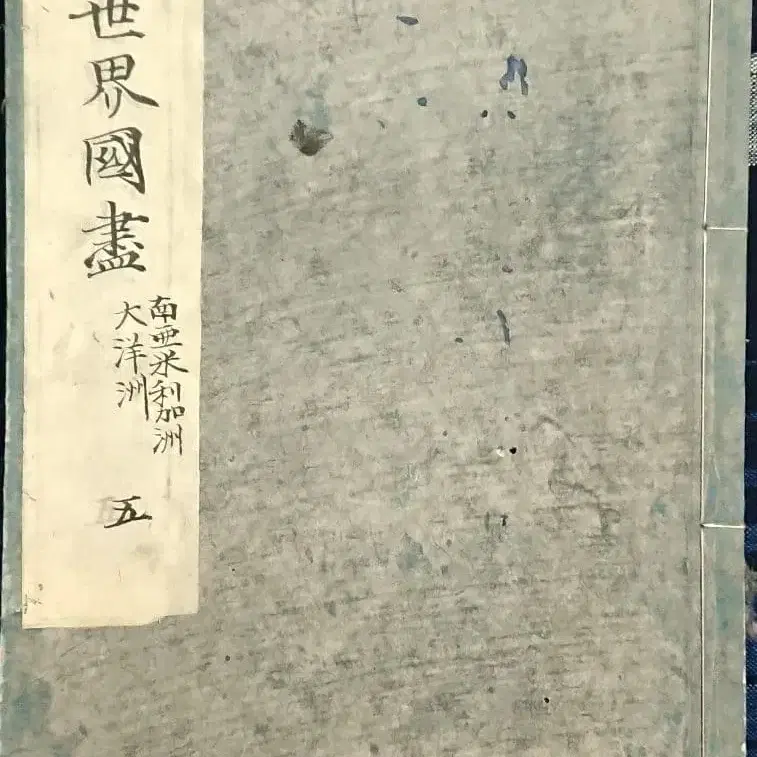 世界國盡
南亜米利加洲
大洋洲
五